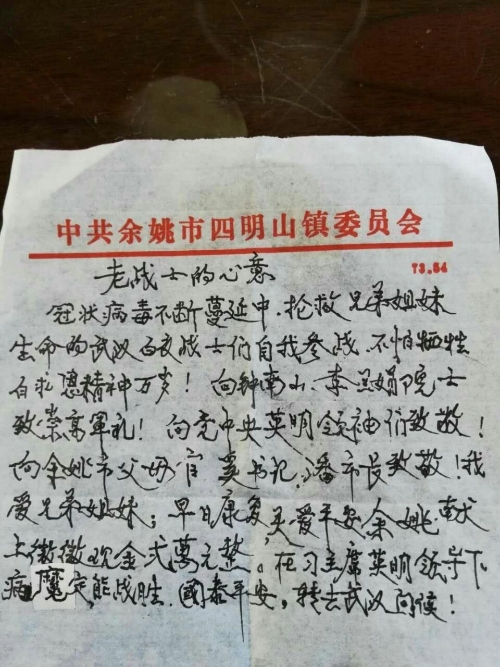 中共余姚市四明山镇委员会
73.54
老战士的心意
冠状病毒不断蔓延中,抢救兄弟姐妹
生命的武汉白衣战士们自我参战、不怕牺牲
白求恩精神万岁！向钟南山、李兰娟院士
致崇高军礼！向党中央英明领袖们致敬！
向余姚市父母官奚书记、潘市长致敬！我
爱兄弟姐妹；早日康复关爱平安余姚、献
上微微现金弍萬元整。在习主席英明领导下
病魔定能战胜.國泰平安,转去武汉问候！